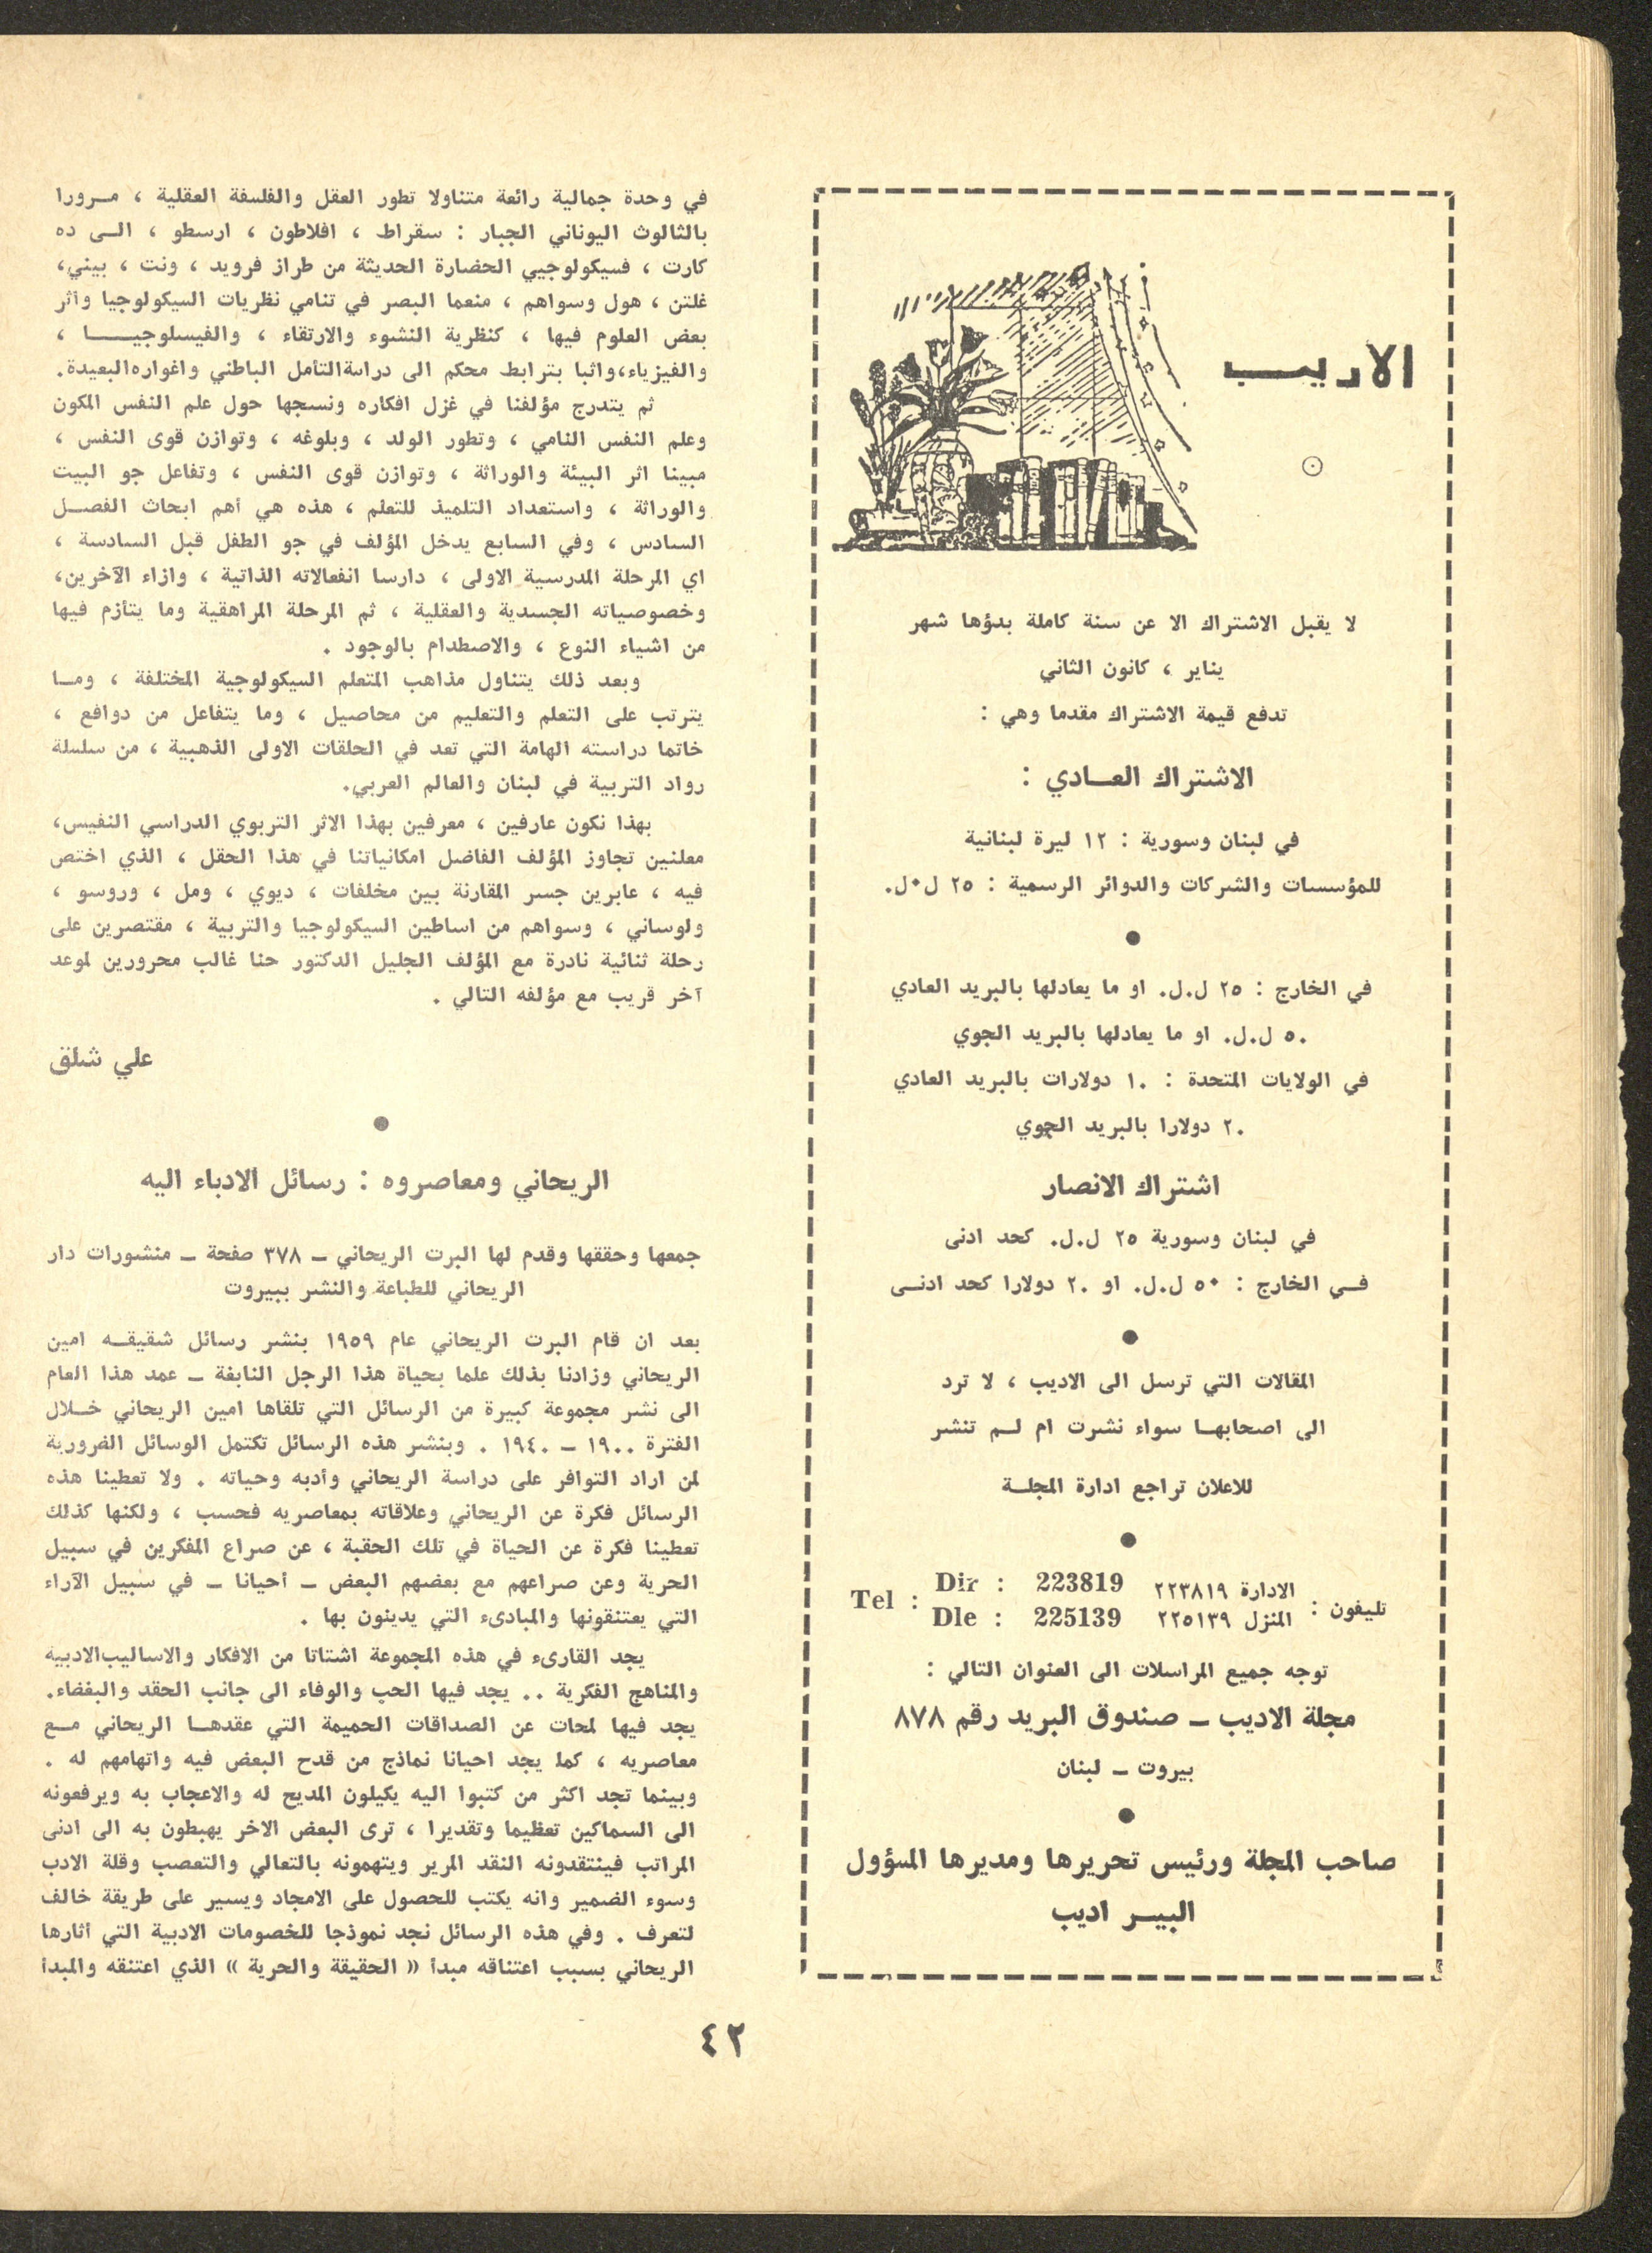 الاديب
لا يقبل الاشتراك الا عن سنة كاملة بدؤها شهر
يناير ، كانون الثاني
تدفع قيمة الاشتراك مقدما وهي :
الاشتراك العـادي :
في لبنان وسورية : ١٢ ليرة لبنانية
للمؤسسات والشركات والدوائر الرسمية : ٢٥ ل.ل.
في الخارج : ٢٥ ل.ل. او ما يعادلها بالبريد العادي
٥٠ ل.ل. او ما يعادلها بالبريد الجوي
في الولايات المتحدة : ١٠ دولارات بالبريد العادي
٢٠ دولارا بالبريد الجوي
اشتراك الانصار
في لبنان وسورية ٢٥ ل.ل. كحد ادنى
فـي الخارج : ٥٠ ل.ل. او ٢٠ دولارا كحد ادنـى
المقالات التي ترسل الى الاديب ، لا ترد
الى اصحابهـا سواء نشرت ام لـم تنشر
للاعلان تراجع ادارة المجلـة
تليفون : الادارة ٢٢٣٨١٩ Tel : Dir : 223819
المنزل ٢٢٥١٣٩ Dle : 225139
توجه جميع المراسلات الى العنوان التالي :
مجلة الاديب ــ صندوق البريد رقم ٨٧٨
بيروت ــ لبنان
صاحب المجلة ورئيس تحريرها ومديرها المسؤول
البيـر اديب
في وحدة جمالية رائعة متناولا تطور العقل والفلسفة العقلية ، مـرورا
بالثالوث اليوناني الجبار : سقراط ، افلاطون ، ارسطو ، الـى ده
كارت ، فسيكولوجيي الحضارة الحديثة من طراز فرويد ، ونت ، بيني،
غلتن ، هول وسواهم ، منعما البصر في تنامي نظريات السيكولوجيا وأثر
بعض العلوم فيها ، كنظرية النشوء والارتقاء ، والفيسلوجيـــا ،
والفيزياء،واثبا بترابط محكم الى دراسةالتأمل الباطني واغوارهالبعيدة.
ثم يتدرج مؤلفنا في غزل افكاره ونسجها حول علم النفس المكون
وعلم النفس النامي ، وتطور الولد ، وبلوغه ، وتوازن قوى النفس ،
مبينا اثر البيئة والوراثة ، وتوازن قوى النفس ، وتفاعل جو البيت
والوراثة ، واستعداد التلميذ للتعلم ، هذه هي أهم ابحاث الفصـل
السادس ، وفي السابع يدخل المؤلف في جو الطفل قبل السادسة ،
اي المرحلة المدرسية الاولى ، دارسا انفعالاته الذاتية ، وازاء الآخرين،
وخصوصياته الجسدية والعقلية ، ثم المرحلة المراهقية وما يتأزم فيها
من اشياء النوع ، والاصطدام بالوجود .
وبعد ذلك يتناول مذاهب المتعلم السيكولوجية المختلفة ، ومـا
يترتب على التعلم والتعليم من محاصيل ، وما يتفاعل من دوافع ،
خاتما دراسته الهامة التي تعد في الحلقات الاولى الذهبية ، من سلسلة
رواد التربية في لبنان والعالم العربي.
بهذا نكون عارفين ، معرفين بهذا الاثر التربوي الدراسي النفيس،
معلنين تجاوز المؤلف الفاضل امكانياتنا في هذا الحقل ، الذي اختص
فيه ، عابرين جسر المقارنة بين مخلفات ، ديوي ، ومل ، وروسو ،
ولوساني ، وسواهم من اساطين السيكولوجيا والتربية ، مقتصرين على
رحلة ثنائية نادرة مع المؤلف الجليل الدكتور حنا غالب محرورين لموعد
آخر قريب مع مؤلفه التالي .
علي شلق
الريحاني ومعاصروه : رسائل الادباء اليه
جمعها وحققها وقدم لها البرت الريحاني ــ ٣٧٨ صفحة ــ منشورات دار
الريحاني للطباعة والنشر ببيروت
بعد ان قام البرت الريحاني عام ١٩٥٩ بنشر رسائل شقيقـه امين
الريحاني وزادنا بذلك علما بحياة هذا الرجل النابغة ــ عمد هذا العام
الى نشر مجموعة كبيرة من الرسائل التي تلقاها امين الريحاني خـلال
الفترة ١٩٠٠ ــ ١٩٤٠ . وبنشر هذه الرسائل تكتمل الوسائل الضرورية
لمن اراد التوافر على دراسة الريحاني وأدبه وحياته . ولا تعطينا هذه
الرسائل فكرة عن الريحاني وعلاقاته بمعاصريه فحسب ، ولكنها كذلك
تعطينا فكرة عن الحياة في تلك الحقبة ، عن صراع المفكرين في سبيل
الحرية وعن صراعهم مع بعضهم البعض ــ أحيانا ــ في سبيل الآراء
التي يعتنقونها والمبادىء التي يدينون بها .
يجد القارىء في هذه المجموعة اشتاتا من الافكار والاساليبالادبية
والمناهج الفكرية .. يجد فيها الحب والوفاء الى جانب الحقد والبغضاء.
يجد فيها لمحات عن الصداقات الحميمة التي عقدهـا الريحاني مـع
معاصريه ، كما يجد احيانا نماذج من قدح البعض فيه واتهامهم له .
وبينما تجد اكثر من كتبوا اليه يكيلون المديح له والاعجاب به ويرفعونه
الى السماكين تعظيما وتقديرا ، ترى البعض الاخر يهبطون به الى ادنى
المراتب فينتقدونه النقد المرير ويتهمونه بالتعالي والتعصب وقلة الادب
وسوء الضمير وانه يكتب للحصول على الامجاد ويسير على طريقة خالف
لتعرف . وفي هذه الرسائل نجد نموذجا للخصومات الادبية التي أثارها
الريحاني بسبب اعتناقه مبدأ « الحقيقة والحرية » الذي اعتنقه والمبدأ
٤٢